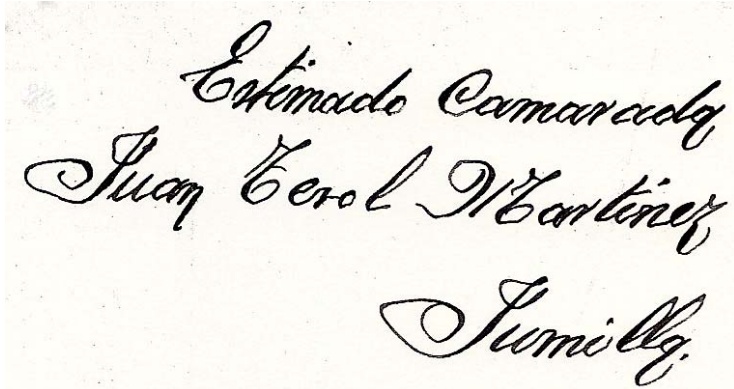 Estimado Camarada
Juan Terol Martinez
Jumilla.